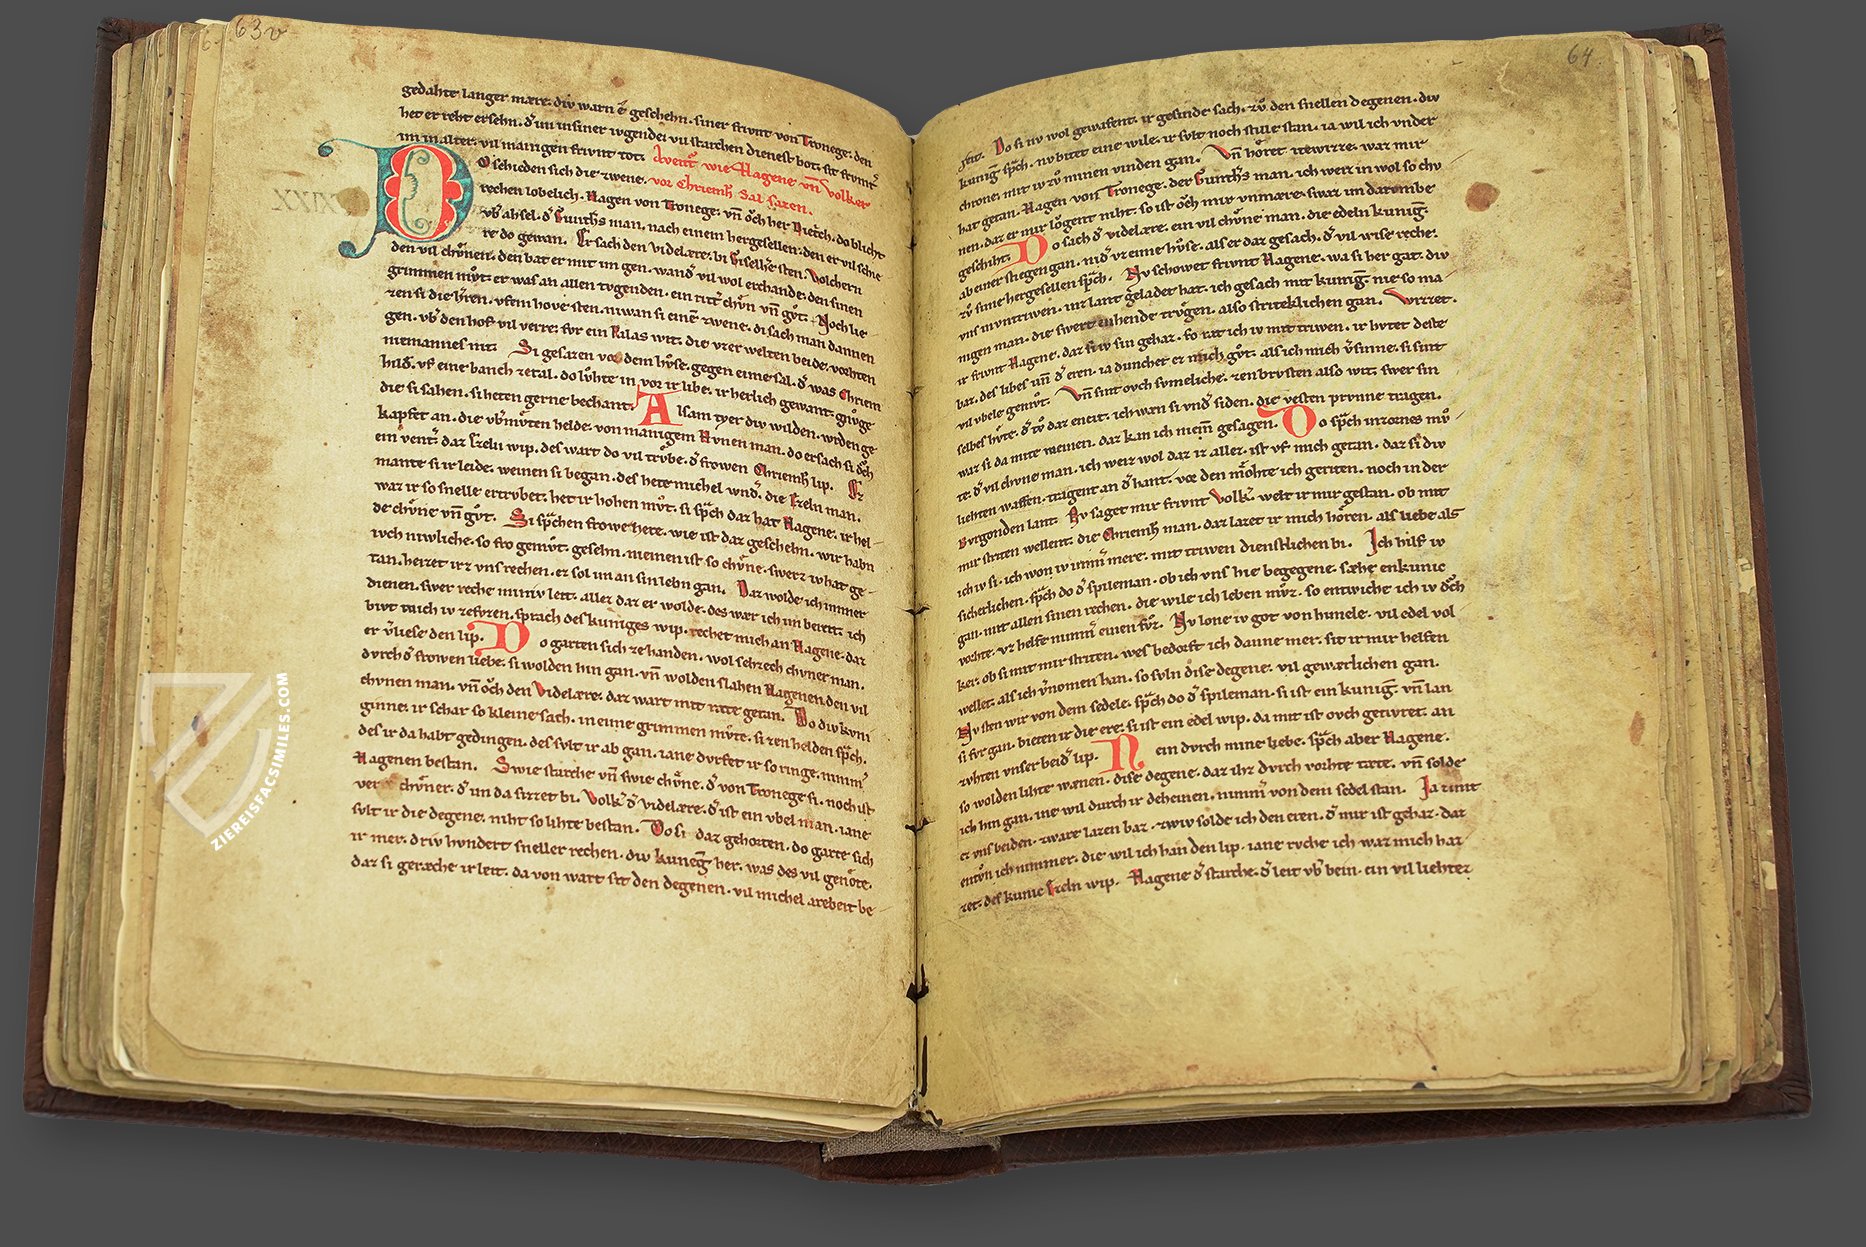 63v
gedahte langer mære. div warn ê geschehn. siner frivnt von Tronege. den
het er reht ersehn. d̛ im in siner ivgende. vil starchen dienest bot. sit frvmt̛
im in alter. vil manigen frivnt tot. Avent̛ wie Hagene vn̄ Volker
Do schieden sich die zwene. vor Chriemh̛ Sal sazen.
rechen lobelich. Hagen von Tronege. vn̄ och her Dietͤch. do blicht
vb̛ ahsel. d̛ Gunth̛s man. nach einem hergesellen. den er vil schie
re do gewan. Er sach den videlære. bi Giselh̛e sten. Volchern
den vil chv̊nen. den bat er mit im gen. wand̛ vil wol erchande. den sinen
grimmen mv̊t. er was an allen tvgenden. ein ritt̛ chv̊n vn̄ gv̊t. Noch lie
zen si die h̛ren. vfem hove sten. niwan si einē zwene. di sach man dannen
gen. vb̛ den hof vil verre. fvr ein Palas wit. die vzer welten beide. vorhten
niemannes nit. Si gesazen vor dem hvse. gegen eime sal. d̛ was Chriem
hild̛. vf eine banch zetal. do lv̊hte in vor ir libe. ir herlich gewant. gnv̊ge
die si sahen. si heten gerne bechant. Alsam tyer div wilden. wrden ge
kapfet an. die vb̛mv̊ten helde. von manigem Hvnen man. do ersach si och
ein vent̛ daz Ezeln wip. des wart do vil trv̊be. d̛ frowen Chriemh̛ lip. Ez
mante si ir leide. weinen si began. des hete michel wnd̛. die Ezeln man.
waz ir so snelle ertrvbet. het ir hohen mv̊t. si sp̄ch daz hat Hagene. ir hel
de chv̊ne vn̄ gv̊t. Si sp̄chen frowe here. wie ist daz geschehn. wir habn
ivch niwliche. so fro gemv̊t gesehn. niemen ist so chv̊ne. swerz iv hat ge
tan. heizet irz vns rechen. ez sol im an sin lebn gan. Daz wolde ich immer
dienen. swer reche miniv leit. allez daz er wolde. des wær ich im bereit. ich
bivt mich iv zefvzen. sprach des kuniges wip. rechet mich an Hagene. daz
er v̛liese den lip. Do garten sich zehanden. wol sehzech chvner man.
dvrch d̛ frowen liebe. si wolden hin gan. vn̄ wolden slahen Hagenen. den vil
chvnen man. vn̄ och den Videlære. daz wart mit rate getan. Do div kvni
ginne. ir schar so kleine sach. in eime grimmen mv̊te. si zen helden sp̄ch.
des ir da habt gedingen. des svlt ir ab gan. iane dvrfet ir so ringe. nimm̛
Hagenen bestan. Swie starche vn̄ swie chv̊ne. d̛ von Tronege si. noch ist
verre chv̊ner. d̛ im da sizzet bi. Volk̛ d̛ videlære. d̛ ist ein vbel man. iane
svlt ir die degene. niht so lihte bestan. Do si daz gehorten. do garte sich
ir mer. driv hvndert sneller rechen. div kuneg̛ her. was des vil genote.
daz si geræche ir leit. da von wart sit den degenen. vil michel arebeit be
64
reit. Do si nv wol gewafent. ir gesinde sach. zv̊ den snellen degenen. div
kunig̛ sp̄ch. nv bitet eine wile. ir svlt noch stille stan. ia wil ich vnder
chrone. mit iv zv̊ minen vinden gan. Vn̄ hôret itewizze. waz mir
hat getan. Hagen von Tronege. der Gunth̛s man. ich weiz in wol so chv
nen. daz er mir lôgent niht. so ist och mir vnmære. swaz im darvmbe
geschiht. Do sach d̛ videlære. ein vil chv̊ne man. die edeln kunig̛.
ab einer stiegen gan. nid̛ vz eime hv̊se. als er daz gesach. d̛ vil wise reche.
zv̊ sime hergesellen sp̄ch. Nv schowet frivnt Hagene. wa si her gat. div
vns in vntriwen. inz lant geladet hat. ich gesach mit kunig̛. nie so ma
nigen man. die swert inhende trv̊gen. also striteklichen gan. Wizzet.
ir frivnt Hagene. daz si iv sin gehaz. so rat ich iv mit triwen. ir hvtet deste
baz. des libes vn̄ d̛ eren. ia dunchet ez mich gv̊t. als ich mich v̛sinne. si sint
vil vbele gemv̊t. Vn̄ sint ovch svmeliche. zen brvsten also wit. swer sin
selbes hv̊te. d̛ tv̊ daz encit. ich wæn si vnd̛ siden. die vesten prvnne tragen.
waz si da mite meinen. daz kan ich niem̄ gesagen. Do sp̄ch inzornes mv̊
te. d̛ vil chvne man. ich weiz wol daz iz allez. ist vf mich getan. daz si div
liehten waffen. tragent an d̛ hant. vor den mohte ich geriten. noch in der
Bvrgonden lant. Nv saget mir frivnt Volk̛. welt ir mir gestan. ob mit
mir striten wellent. die Chriemh̛ man. daz lazet ir mich hôren. als liebe als
ich iv si. ich won iv imm̛ mere. mit triven dienstlichen bi. Ich hilf iv
sicherlichen. sp̄ch do d̛ spileman. ob ich vns hie begegene. sæhe enkunic
gan. mit allen sinen rechen. die wile ich leben mv̊z. so entwiche ich iv doch
vorhte. vz helfe nimm̛ einen fv̊z. Nv lone iv got von himele. vil edel vol
ker. ob si mit mir striten. wes bedorft ich danne mer. sit ir mir helfen
wellet. als ich v̛nomen han. so svln dise degene. vil gewerlichen gan.
Nv sten wir von dem sedele. sp̄ch do d̛ spileman. si ist ein kunig̛. vn̄ lan
si fvr gan. bieten ir die ere. si ist ein edel wip. da mit ist ovch getivret. an
zvhten vnser beid̛ lip. Nein dvrch mine liebe. sp̄ch aber Hagene.
so wolden lihte wænen. dise degene. daz ihz dvrch vorhte tæte. vn̄ solde
ich hin gan. ine wil durch ir deheinen. nimm̛ von dem sedel stan. Ja zimt
ez vns beiden. zware lazen baz. zwiv solde ich den eren. d̛ mir ist gehaz. daz
entv̊n ich nimmer. die wil ich han den lip. iane rvche ich waz mich haz
zet. des kunic Ezeln wip. Hagene d̛ starche. d̛ leit vb̛ bein. ein vil liehtez
ZIEREISFACSIMILES.COM